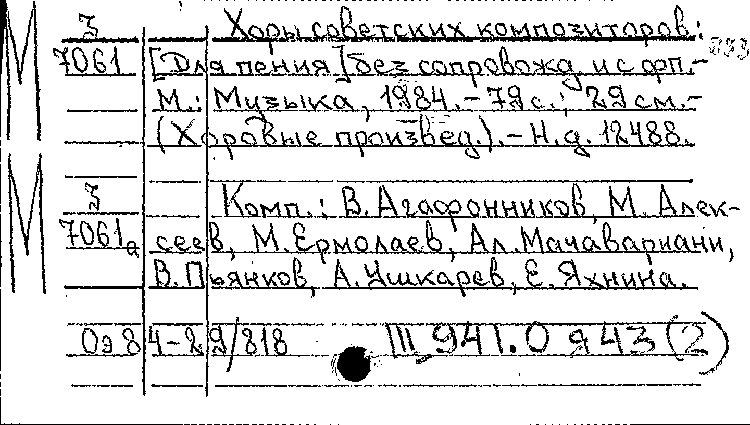 М З Хоры советских композиторов:
7061 [Для пения] без сопровожд. и с фп.-
М.: Музыка, 1984.-79с.; 29см.-
(Хоровые произвед.).-Н.д. 12488.
М З Комп.: В. Агафонников, М. Алек-
7061а сеев, М. Ермолаев, Ал. Мачавариани,
В. Пьянков, А. Ушкарев, Е. Яхнина.
Оэ 84-29/818 III 941.0 я 43 (2)